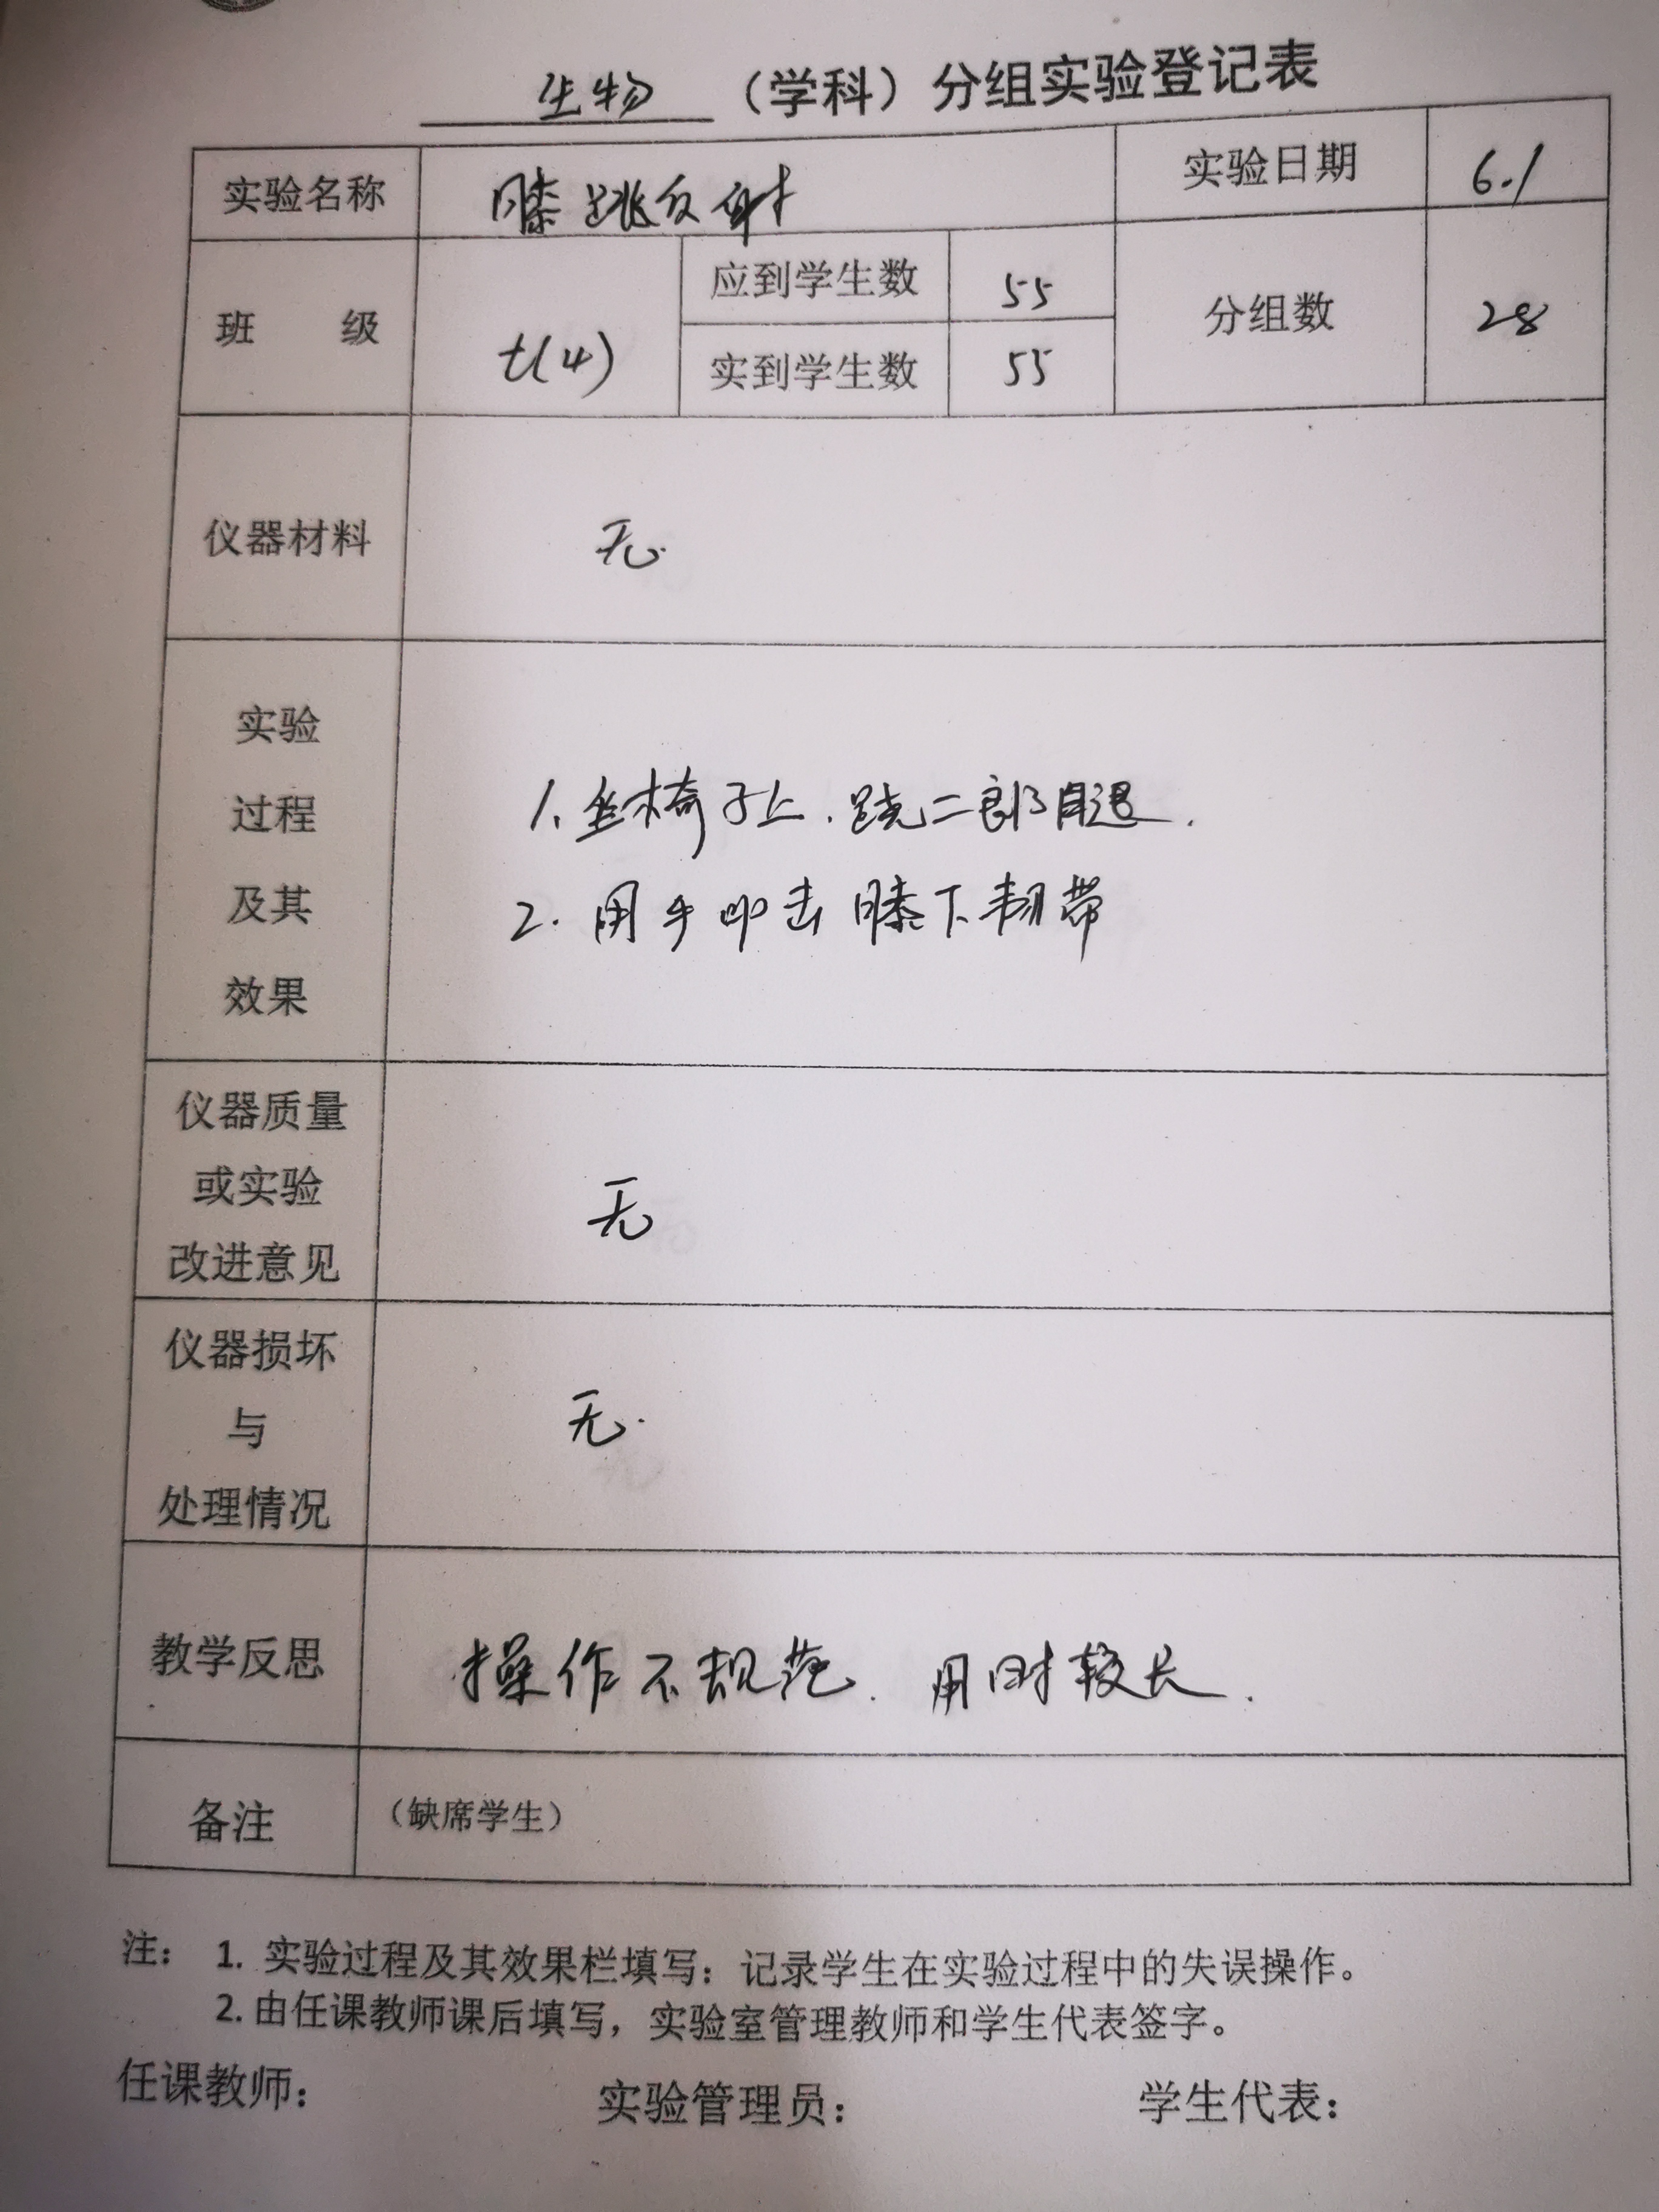 生物 （学科）分组实验登记表
实验名称 膝跳反射 实验日期 6.1
班 级 七(4) 应到学生数 55 分组数 28
实到学生数 55
仪器材料 无.
实验
过程
及其
效果
1. 坐椅子上.跷二郎腿.
2. 用手叩击膝下韧带
仪器质量
或实验
改进意见
无
仪器损坏
与
处理情况
无.
教学反思 操作不规范.用时较长.
备注 （缺席学生）
注： 1. 实验过程及其效果栏填写：记录学生在实验过程中的失误操作。
2. 由任课教师课后填写，实验室管理教师和学生代表签字。
任课教师： 实验管理员： 学生代表：